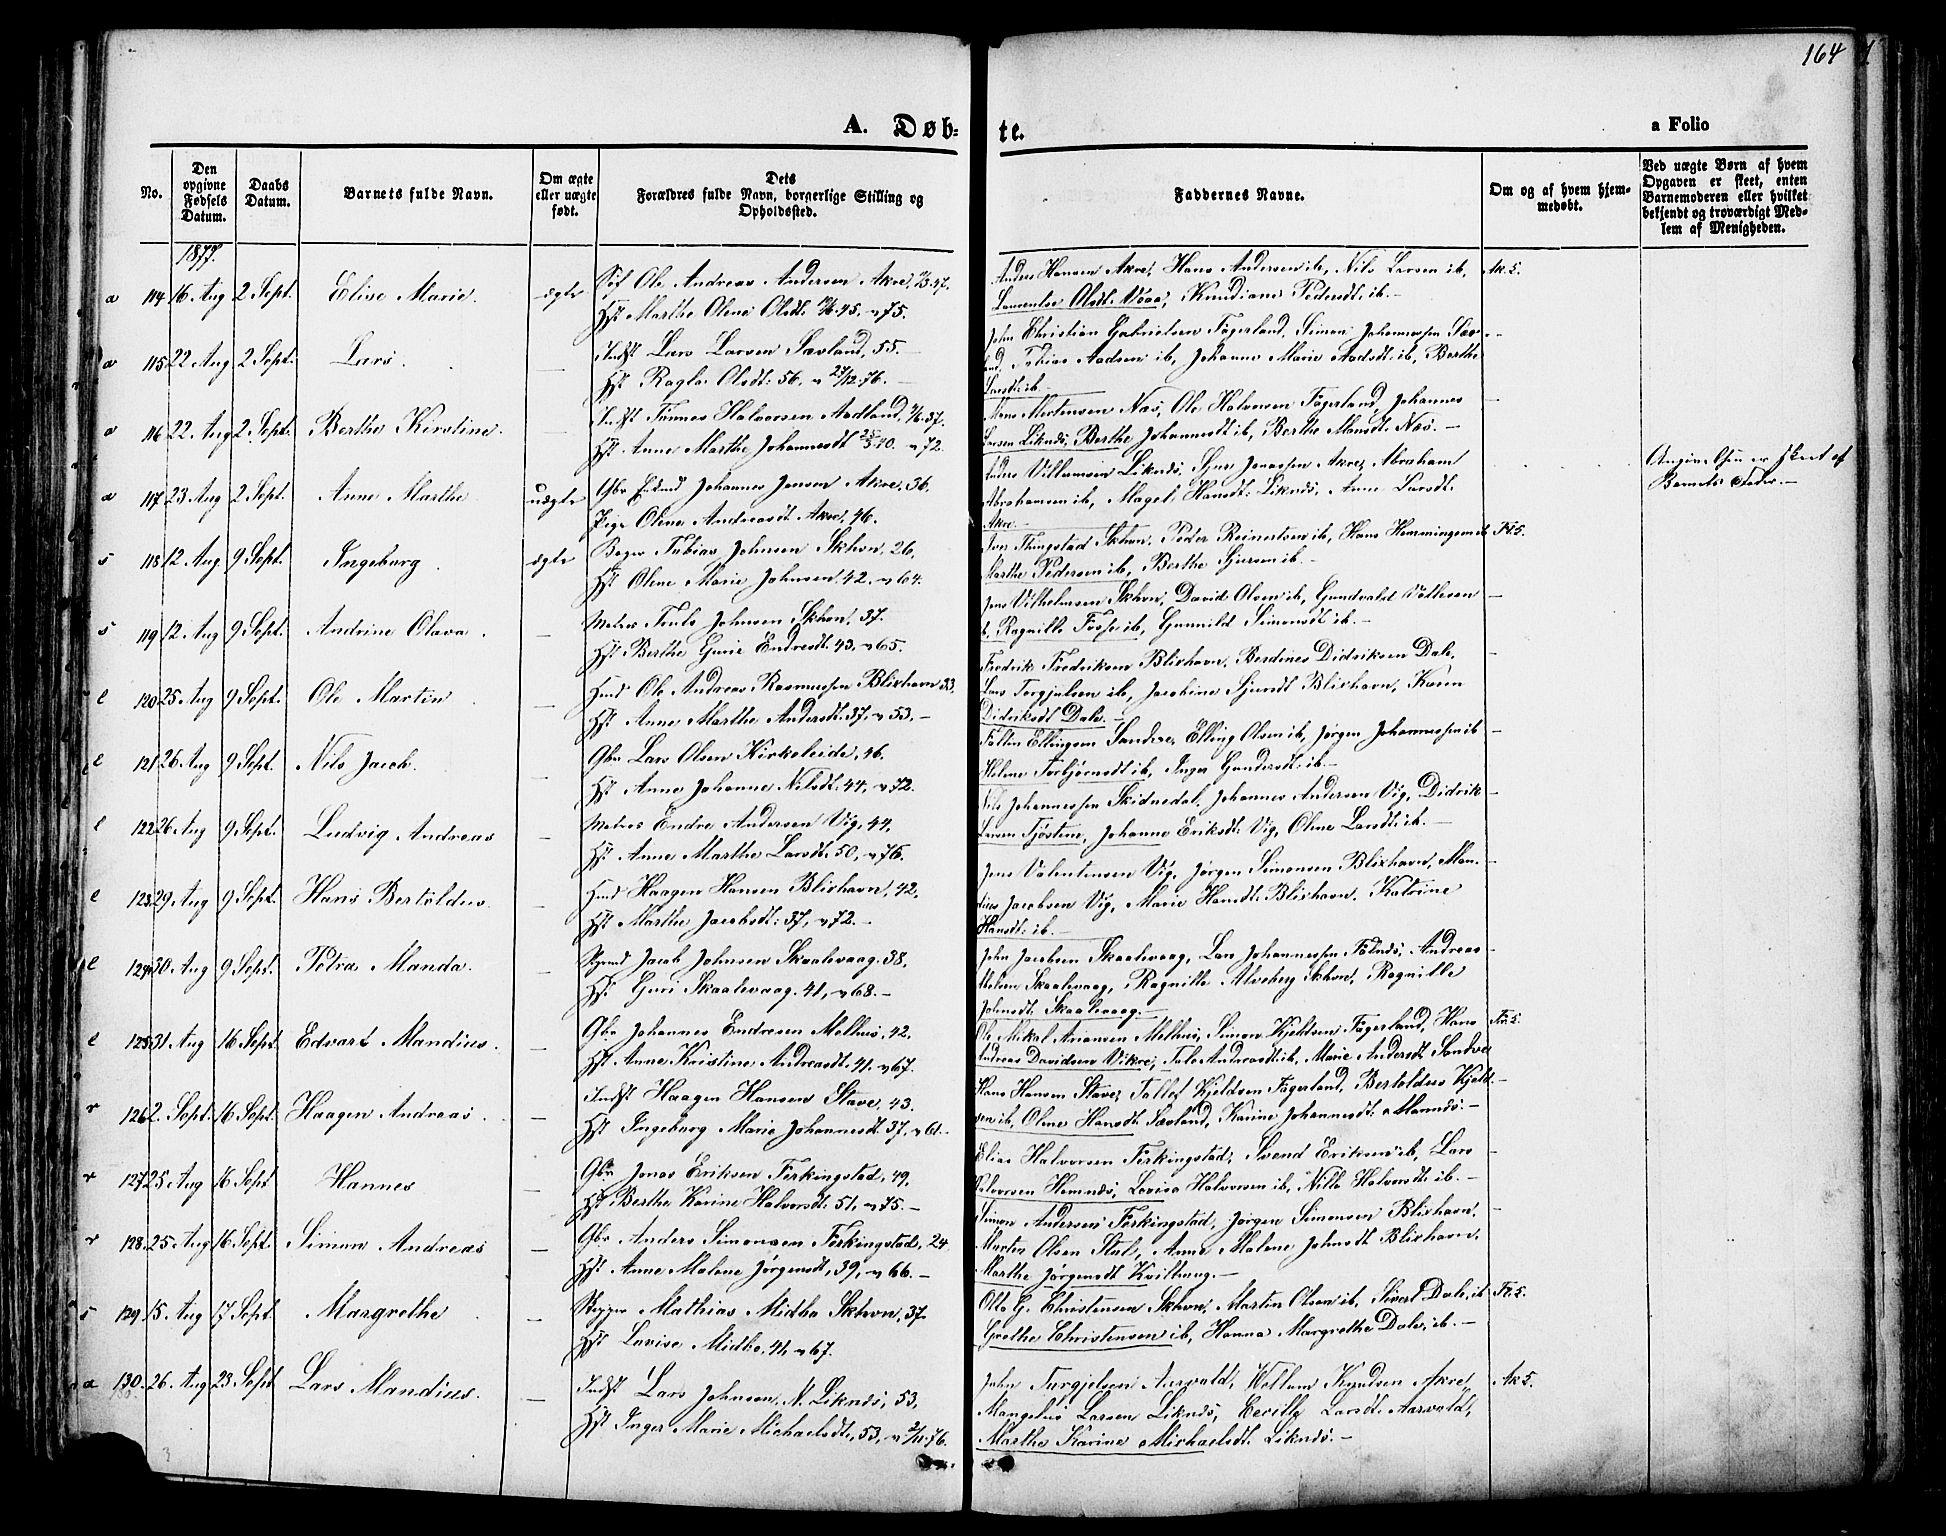 164
A. Døb-
te.
a Folio
No.
Den opgivne Fødsels Datum.
Daabs Datum.
Barnets fulde Navn.
Om ægte eller uægte født.
Dets Forældres fulde Navn, borgerlige Stilling og Opholdssted.
Faddernes Navne.
Om og af hvem hjemmedøbt.
Ved uægte Børn af hvem Opgaven er skeet, enten Barnemoderen eller hvilket bekjendt og troværdigt Medlem af Menigheden.
1877.
a 114 16 Aug 2 Sept. Elise Marie. ægte Ole Andreas Andersen Akre,
Hst Marthe Oline Olsdt. 45. 75.
Anders Hansen Akre, Hans Andersen ib, Nils Larsen ib,
Olsdt. Vaaa, Knudiane Pedersdt. ib. —
Ak 5.
a 115 22 Aug 2 Sept. Lars. — Indst Lars Larsen Sævland, 55. —
Hst Olsdt. 56, 27/12 76. —
John Christian Gabrielsen Fagerland, Simon Johannessen Sæv-
land, Tobias Aadsen ib, Johanne Marie Aadsdt ib, Berthe
Larsdt. ib. —
a 116 22 Aug 2 Sept. Berthe Kirstine. — Indst Tønnes Halvorsen Aadland,
Hst Anne Marthe Johannesdt 40. 72.
Mortensen Næs, Ole Halvorsen Fagerland, Johannes
Larsen Liknæs, Berthe Johannesdt ib, Berthe Monsdt. Næs. —
a 117 23 Aug 2 Sept. Anne Marthe uægte Gbr Johannes Jonsen Akre, 36.
Pige Oline Andreasdt Akre, 46.
Villumsen Liknæs, Sjur Jonassen Akre, Abraham
Abrahamsen ib, Magel Hansdt. Liknæs, Anne Larsdt.
Akre. —
Angivelsen er skeet af
Barnets Fader. —
s 118 12 Aug 9 Sept. Ingeborg. ægte Tobias Johnsen Skhvn, 26,
Hst Oline Marie Johnsen, 42. 64.
Thingstad Skhvn, Peder Reinertsen ib, Hans Hemmingsen ib
Marthe Pedersen ib, Berthe Sjursen ib. —
Fr. 5.
s 119 12 Aug 9 Sept. Andrine Olava. — Johnsen Skhvn, 37.
Hst Berthe Gurie Endresdt. 43, 65.
Jens Vilhelmsen Skhvn, David Olsen ib, Gundvald
Ragnille Fosse ib, Gunnild Simonsdt ib. —
l 120 25 Aug 9 Sept. Ole Martin — Hmd Ole Andreas Rasmussen Blixhavn 33,
Hst Anne Marthe Andersdt. 37, 53. —
Fredrik Fredriksen Blixhavn, Berdines Didriksen Dale,
Lars Torgjulsen ib, Jacobine Sjursdt Blixhavn, Karen
Didriksdt Dale. —
l 121 26 Aug 9 Sept. Nils Jacob. — Gbr Lars Olsen Kirkeleide, 46.
Hst Anne Johanne Nilsdt. 44, 72.
Ellingsen Sandve, Elling Olsen ib, Jørgen Johannessen ib
Helene Torbjørnsdt ib, Inger Gundersdt. ib —
l 122 26 Aug 9 Sept. Ludvig Andreas — Endre Andersen Vig, 44,
Hst Anne Marthe Larsdt. 50, 76.
Nils Johannessen Skidnedal, Johannes Andersen Vig, Didrik
Larsen Tjøstem, Johanne Eriksdt. Vig, Oline Larsdt. ib. —
l 123 29 Aug 9 Sept. Hans Bertoldus — Hmd Haagen Hansen Blixhavn, 42,
Hst Marthe Jacobsdt. 37, 72. —
Jens Valentinsen Vig, Jørgen Simonsen Blixhavn, Man-
dius Jacobsen Vig, Marie Hansdt. Blixhavn, Katrine
Hansdt. ib. —
l 124 30 Aug 9 Sept. Petra Manda. — Jacob Johnsen Skaalevaag. 38,
Hst Guri Skaalevaag. 41, 68. —
John Jacobsen Skaalevaag, Lars Johannessen, Andreas
Skaalevaag, Ragnille Alvsberg Skhvn, Ragnille
Johnsdt. Skaalevaag. —
l 125 31 Aug 16 Sept. Edvart Mandius. — Gbr Johannes Endresen Melhus, 42.
Hst Anne Kristine Andreasdt. 41. 67.
Ole Mikal Melhus, Simon Kjeldsen Fagerland, Hans
Andreas Davidsen Vikre, Andreasdt. ib, Marie Andersdt Sandve
Fr. 5.
r 126 2. Sept. 16 Sept. Haagen Andreas. — Indst Haagen Hansen Stave, 43.
Hst Ingeborg Marie Johannesdt 37, 61. —
Hans Hansen Stave, Tollef Kjeldsen Fagerland, Bertoldus Kjeld-
sen ib, Oline Hansdt. Sævland, Karine Johannesdt. Mannæs. —
r 127 25 Aug 16 Sept Hannes — Gbr Jonas Eriksen Ferkingstad, 49,
Hst Berthe Karine Halvorsdt. 51, 75. —
Elias Halvorsen Ferkingstad, Svend Eriksen ib, Lars
Halvorsen Hemnæs, Lovise Halvorsen ib, Nille Halvorsdt ib. —
r 128. 25 Aug 16 Sept. Simon Andreas — Gbr Anders Simonsen Ferkingstad, 24
Hst Anne Malene Jørgensdt, 39, 66. —
Simon Andersen Ferkingstad, Jørgen Simonsen Blixhavn,
Martin Olsen Stol, Anne Malene Johnsdt Blixhavn,
Marthe Jørgensdt Kvilhaug. —
s 129 15 Aug 17 Sept. Margrethe — Mathias Midbø Skhvn, 37.
Hst Lovise Midbø. 41, 67.
Otto G. Christensen Skhvn, Martin Olsen ib, Sivert Dale, ib
Grethe Christensen ib, Hanna Margrethe Dale, ib. —
Fr. 5.
a 130. 26. Aug 23 Sept Lars Mandius. — Indst Lars Johnsen, N. Liknæs, 53,
Hst Inger Marie Michaelsdt, 53, 2/11 76.
John Torgjelsen Aarvold, Villum Knudsen Akre,
Mangelus Larsen Liknæs, Larsdt. Aarvold,
Marthe Karine Michaelsdt. Liknæs. —
Ak 5.